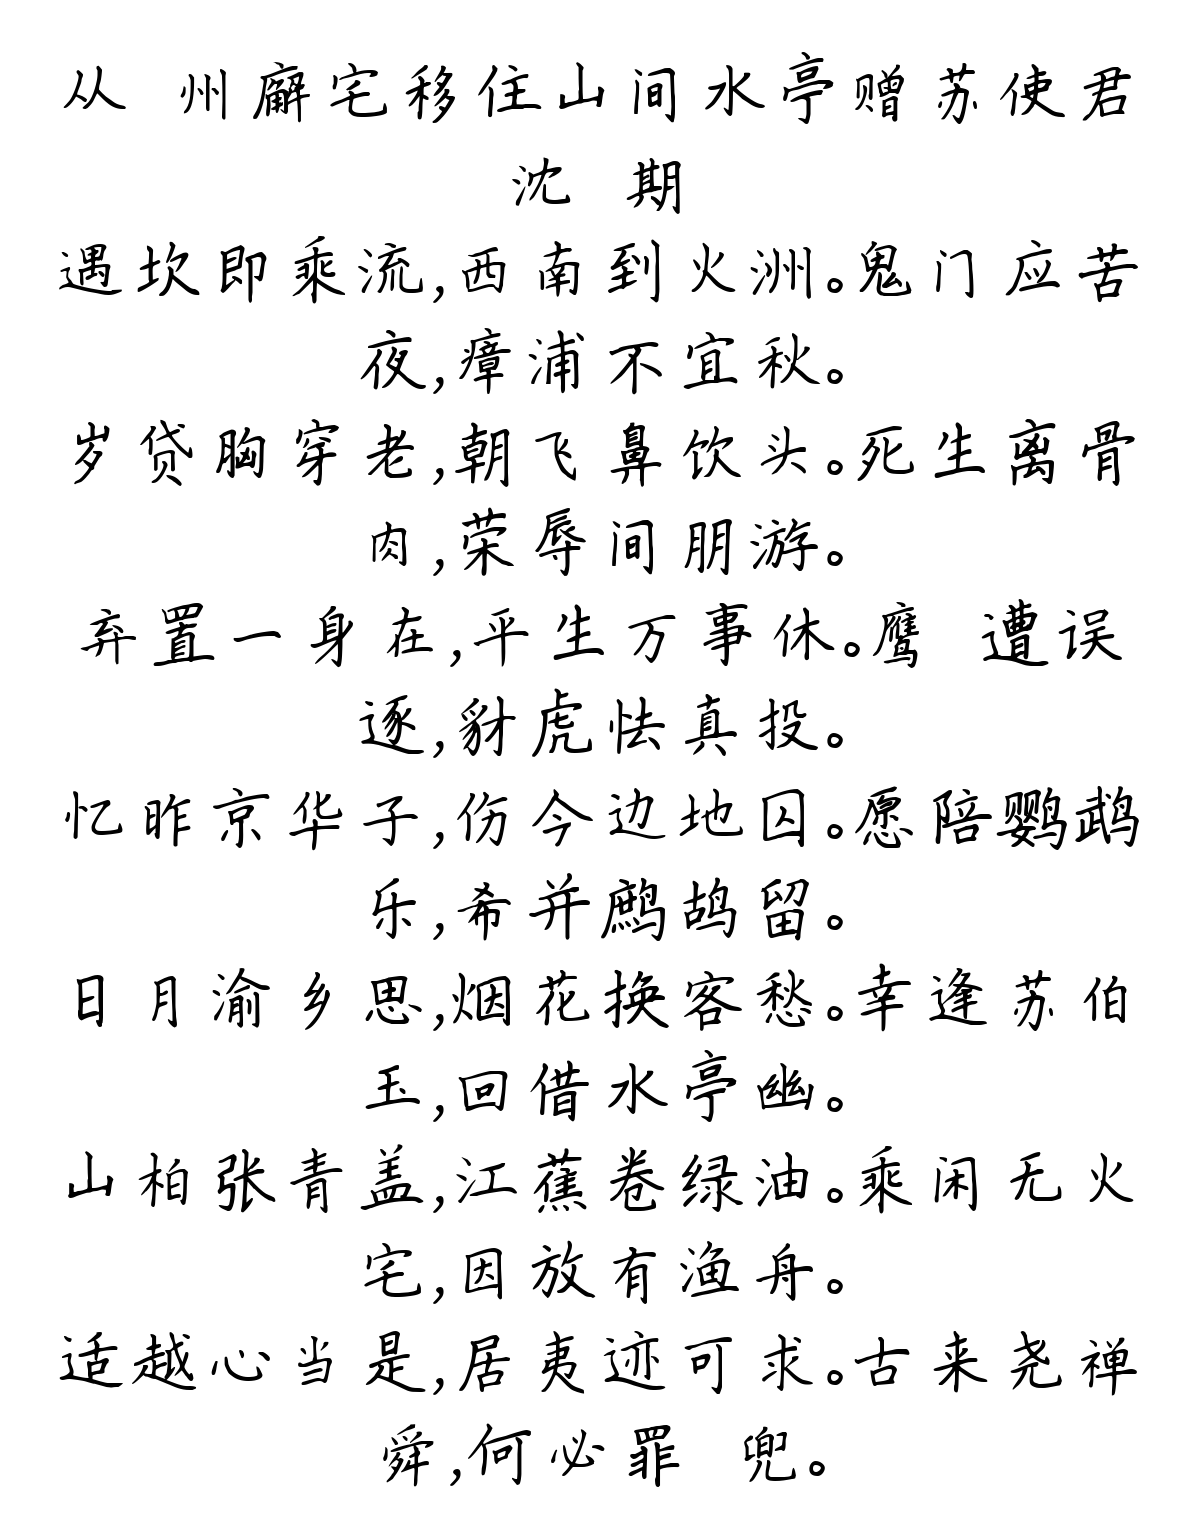 从 州廨宅移住山间水亭赠苏使君
沈 期
遇坎即乘流,西南到火洲。鬼门应苦
夜,瘴浦不宜秋。
岁贷胸穿老,朝飞鼻饮头。死生离骨
肉,荣辱间朋游。
弃置一身在,平生万事休。鹰 遭误
逐,豺虎怯真投。
忆昨京华子,伤今边地囚。愿陪鹦鹉
乐,希并鹧鸪留。
日月渝乡思,烟花换客愁。幸逢苏伯
玉,回借水亭幽。
山柏张青盖,江蕉卷绿油。乘闲无火
宅,因放有渔舟。
适越心当是,居夷迹可求。古来尧禅
舜,何必罪 兜。